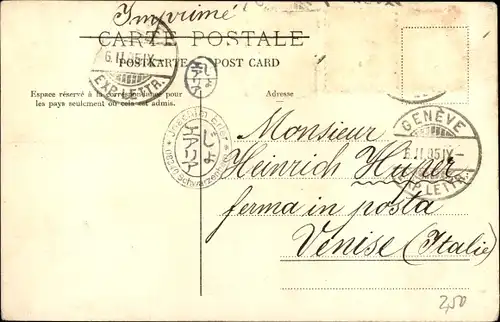 Imprimé
CARTE POSTALE
POSTKARTE POST CARD
6.II.05.IX
EXP. LETTR.
Espace réservé à la correspondance pour
les pays seulement où cela est admis.
Adresse
GENÈVE
6.II.05.IX-
EXP. LETTR.
Monsieur
Heinrich Huper
ferma in posta
Venise (Italie)
2,50